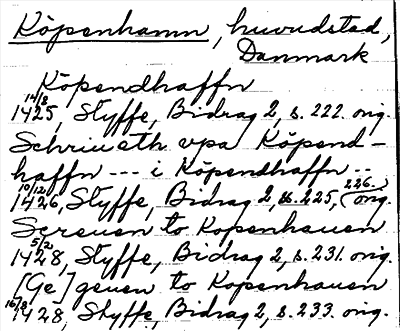 Köpenhamn, huvudstad,
Danmark
Köpendhaffn
14/8
1425, Styffe, Bidrag 2, s. 222. orig.
Schriueth vpa Köpend-
haffn --- i Köpendhaffn --
10/12 226.
1426, Styffe, Bidrag 2, s. 225, orig.
Screuen to Kopenhauen
5/2
1428, Styffe, Bidrag 2, s. 231. orig.
[Ge]geuen to Kopenhauen
16/8
1428, Styffe, Bidrag 2, s. 233. orig.